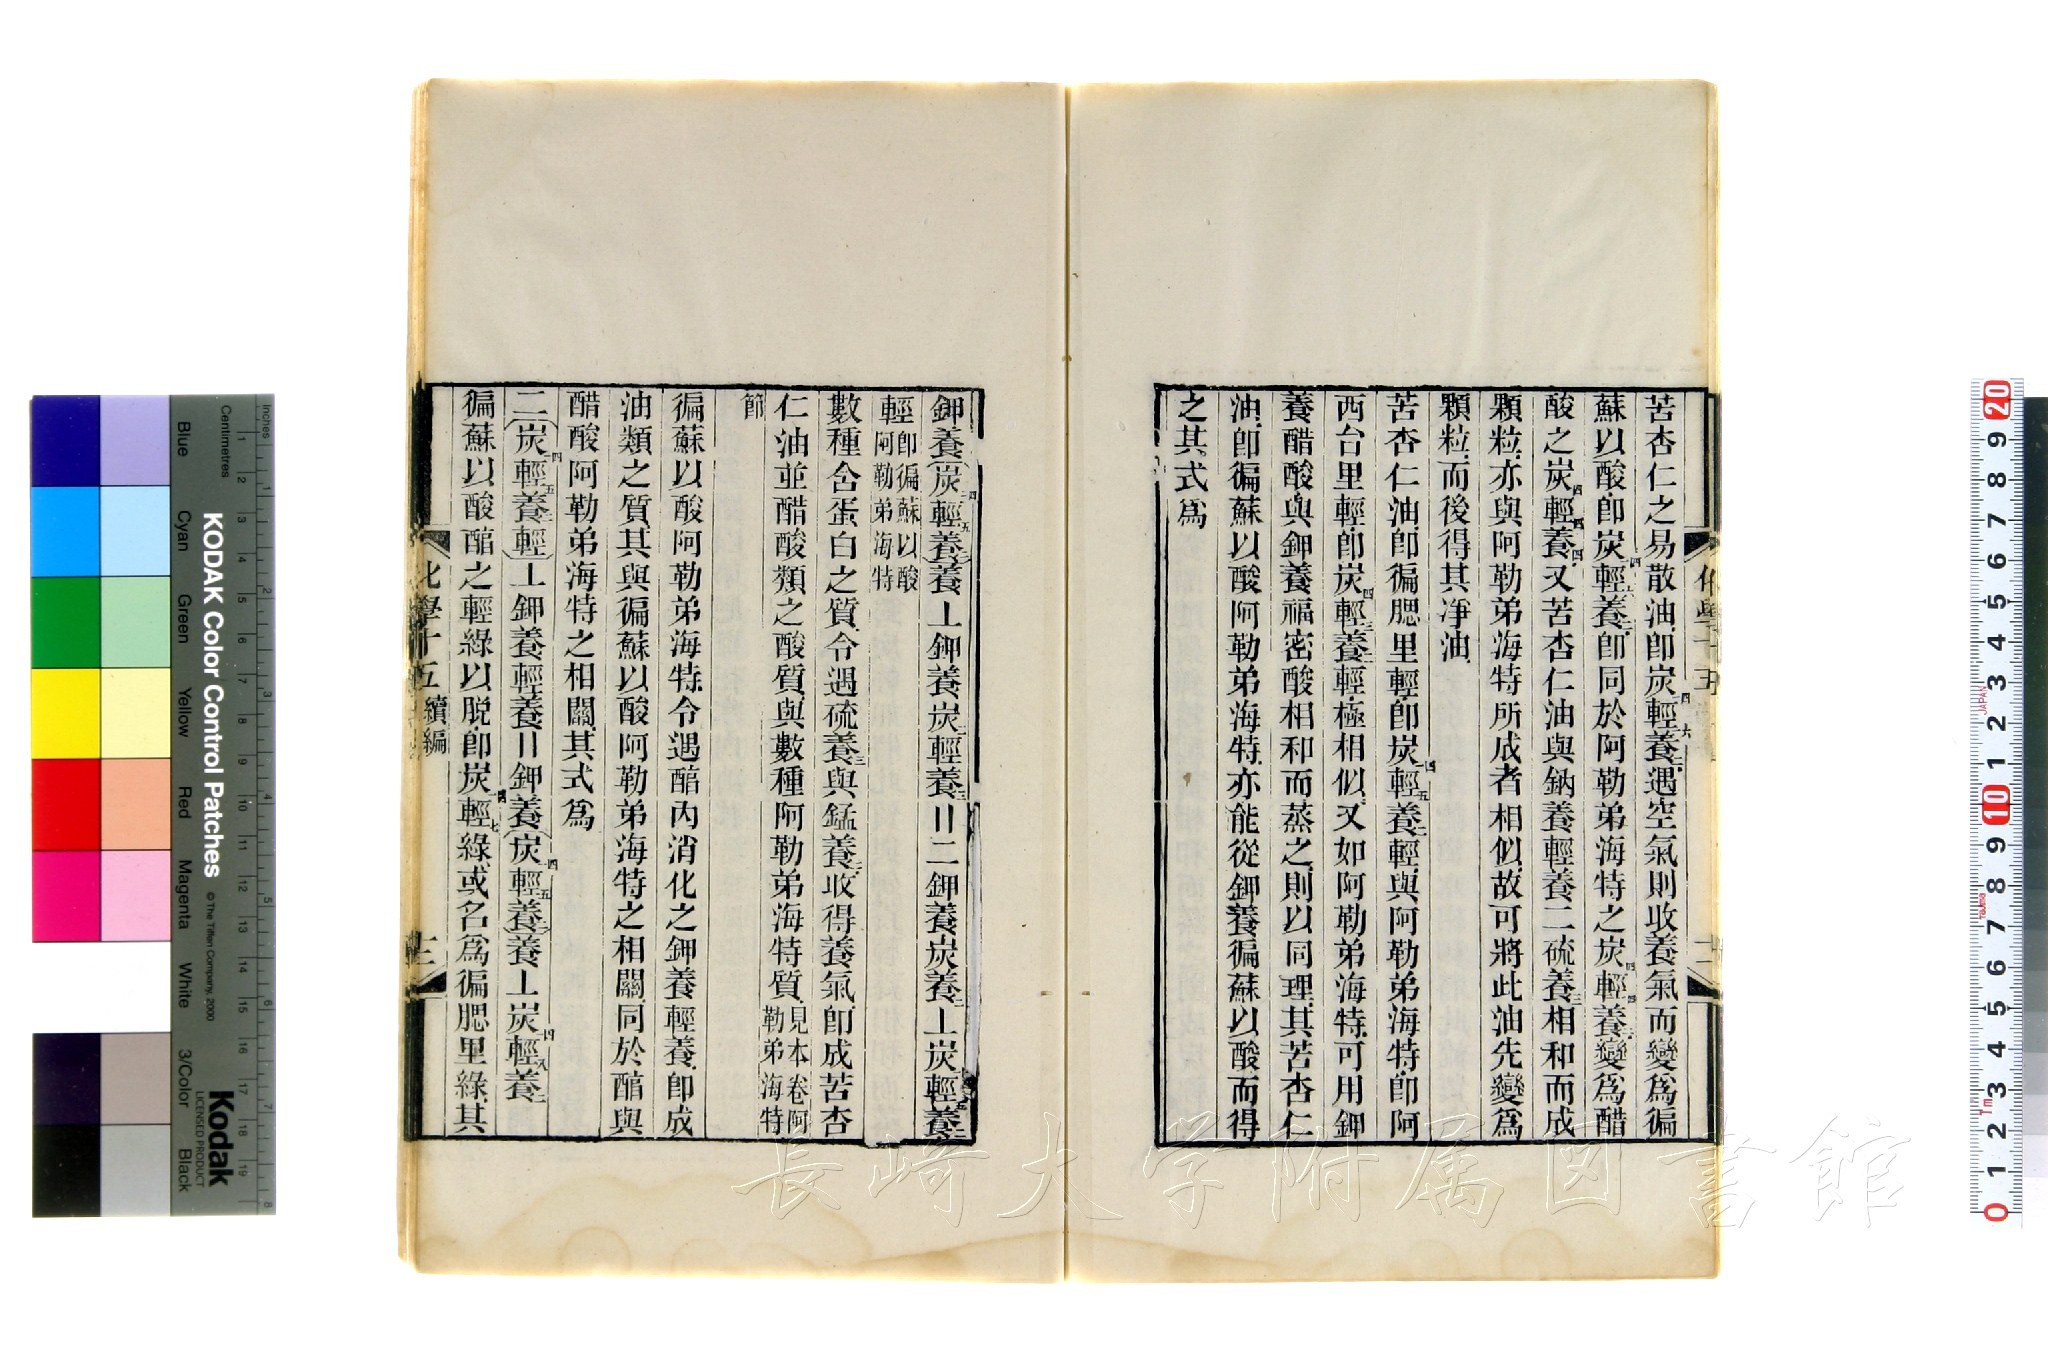 苦杏仁之易散油卽炭輕養遇空氣則收養氣而變爲徧
蘇以酸卽炭輕養卽同於阿勒弟海特之炭輕養變爲醋
酸之炭輕養又苦杏仁油與鈉養輕養二硫養相和而成
顆粒亦與阿勒弟海特所成者相似故可將此油先變爲
顆粒而後得其凈油
苦杏仁油卽徧腮里輕卽炭輕養輕與阿勒弟海特卽阿
西台里輕卽炭輕養輕極相似又如阿勒弟海特可用鉀
養醋酸與鉀養福密酸相和而蒸之則以同理其苦杏仁
油卽徧蘇以酸阿勒弟海特亦能從鉀養徧蘇以酸而得
之其式爲
鉀養(炭輕養)養⊥鉀養炭輕養〢二鉀養炭養⊥炭輕養
輕卽徧蘇以酸
阿勒弟海特
數種含蛋白之質令遇硫養與錳養收得養氣卽成苦杏
仁油並醋酸類之酸質與數種阿勒弟海特質見本卷阿
勒弟海特
節
徧蘇以酸阿勒弟海特令遇醕內消化之鉀養輕養卽成
油類之質其與徧蘇以酸阿勒弟海特之相關同於醕與
醋酸阿勒弟海特之相關其式爲
二(炭輕養輕)⊥鉀養輕養〢鉀養(炭輕養)養⊥炭輕養
徧蘇以酸醕之輕綠以脫卽炭輕綠或名爲徧腮里綠其
化學十五 續編
十二
KODAK Color Control Patches
© The Tiffen Company, 2000
Kodak
LICENSED PRODUCT
Inches
Centimetres
Blue
Cyan
Green
Yellow
Red
Magenta
White
3/Color
Black
JAPAN
長崎大学附属図書館